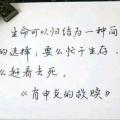 生命可以归结为一种简
的选择：要么忙于生存，
么赶着去死。
《肖申克的救赎》